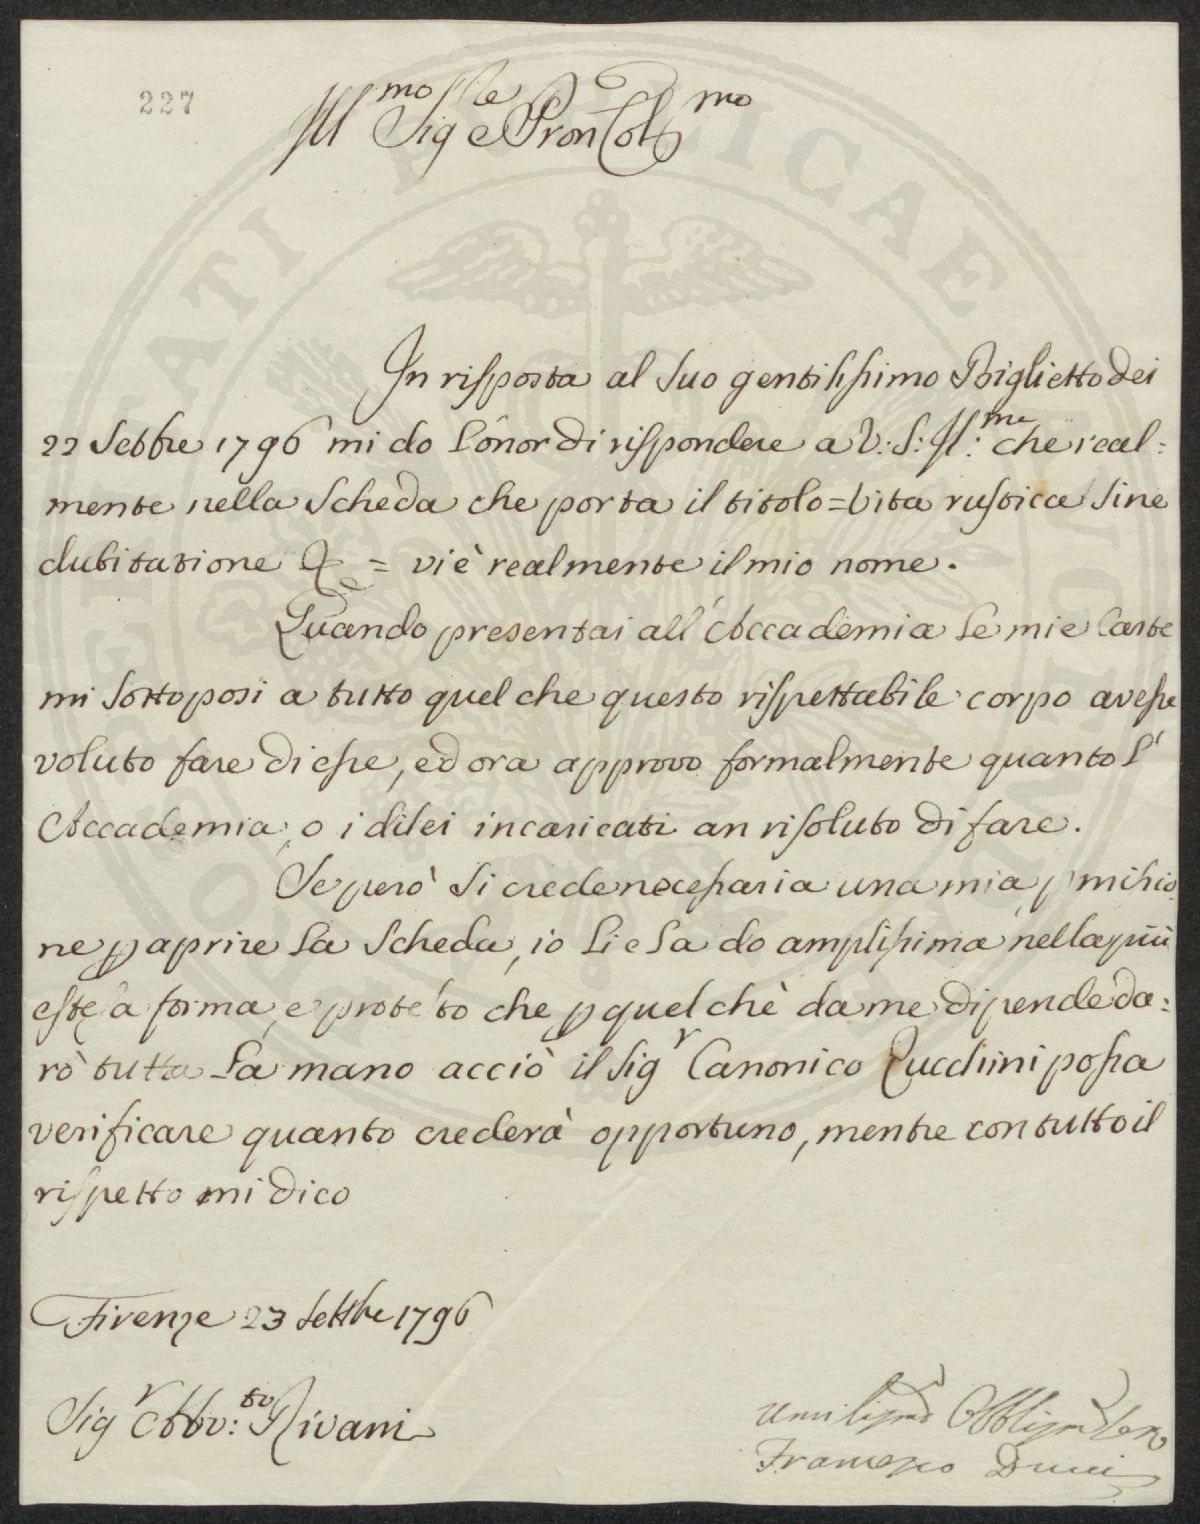 227
Ill.mo Sig.re e Pron Col.mo
In risposta al suo gentilissimo Biglietto dei
22 Settbre 1796 mi do l'onor di rispondere a V: S: Ill:me che real=
mente nella Scheda che porta il titolo = Vita rustica sine
dubitatione &c = vi è realmente il mio nome.
Quando presentai all'Accademia le mie Carte
mi sottoposi a tutto quel che questo rispettabile corpo avesse
voluto fare di esse, ed ora approvo formalmente quanto l'
Accademia, o i di lei incaricati an risoluto di fare.
Se però si crede necessaria una mia pmissio
ne p aprire la Scheda, io lie la do amplissima nella più
estesa forma, e protesto che p quel chè da me dipende da=
rò tutta la mano acciò il Sig.r Canonico Zucchini possa
verificare quanto crederà opportuno, mentre con tutto il
rispetto mi dico
Firenze 23 Settbre 1796
Sig.r Avv:to Rivani
Umilissmo Obbligmo
Francesco